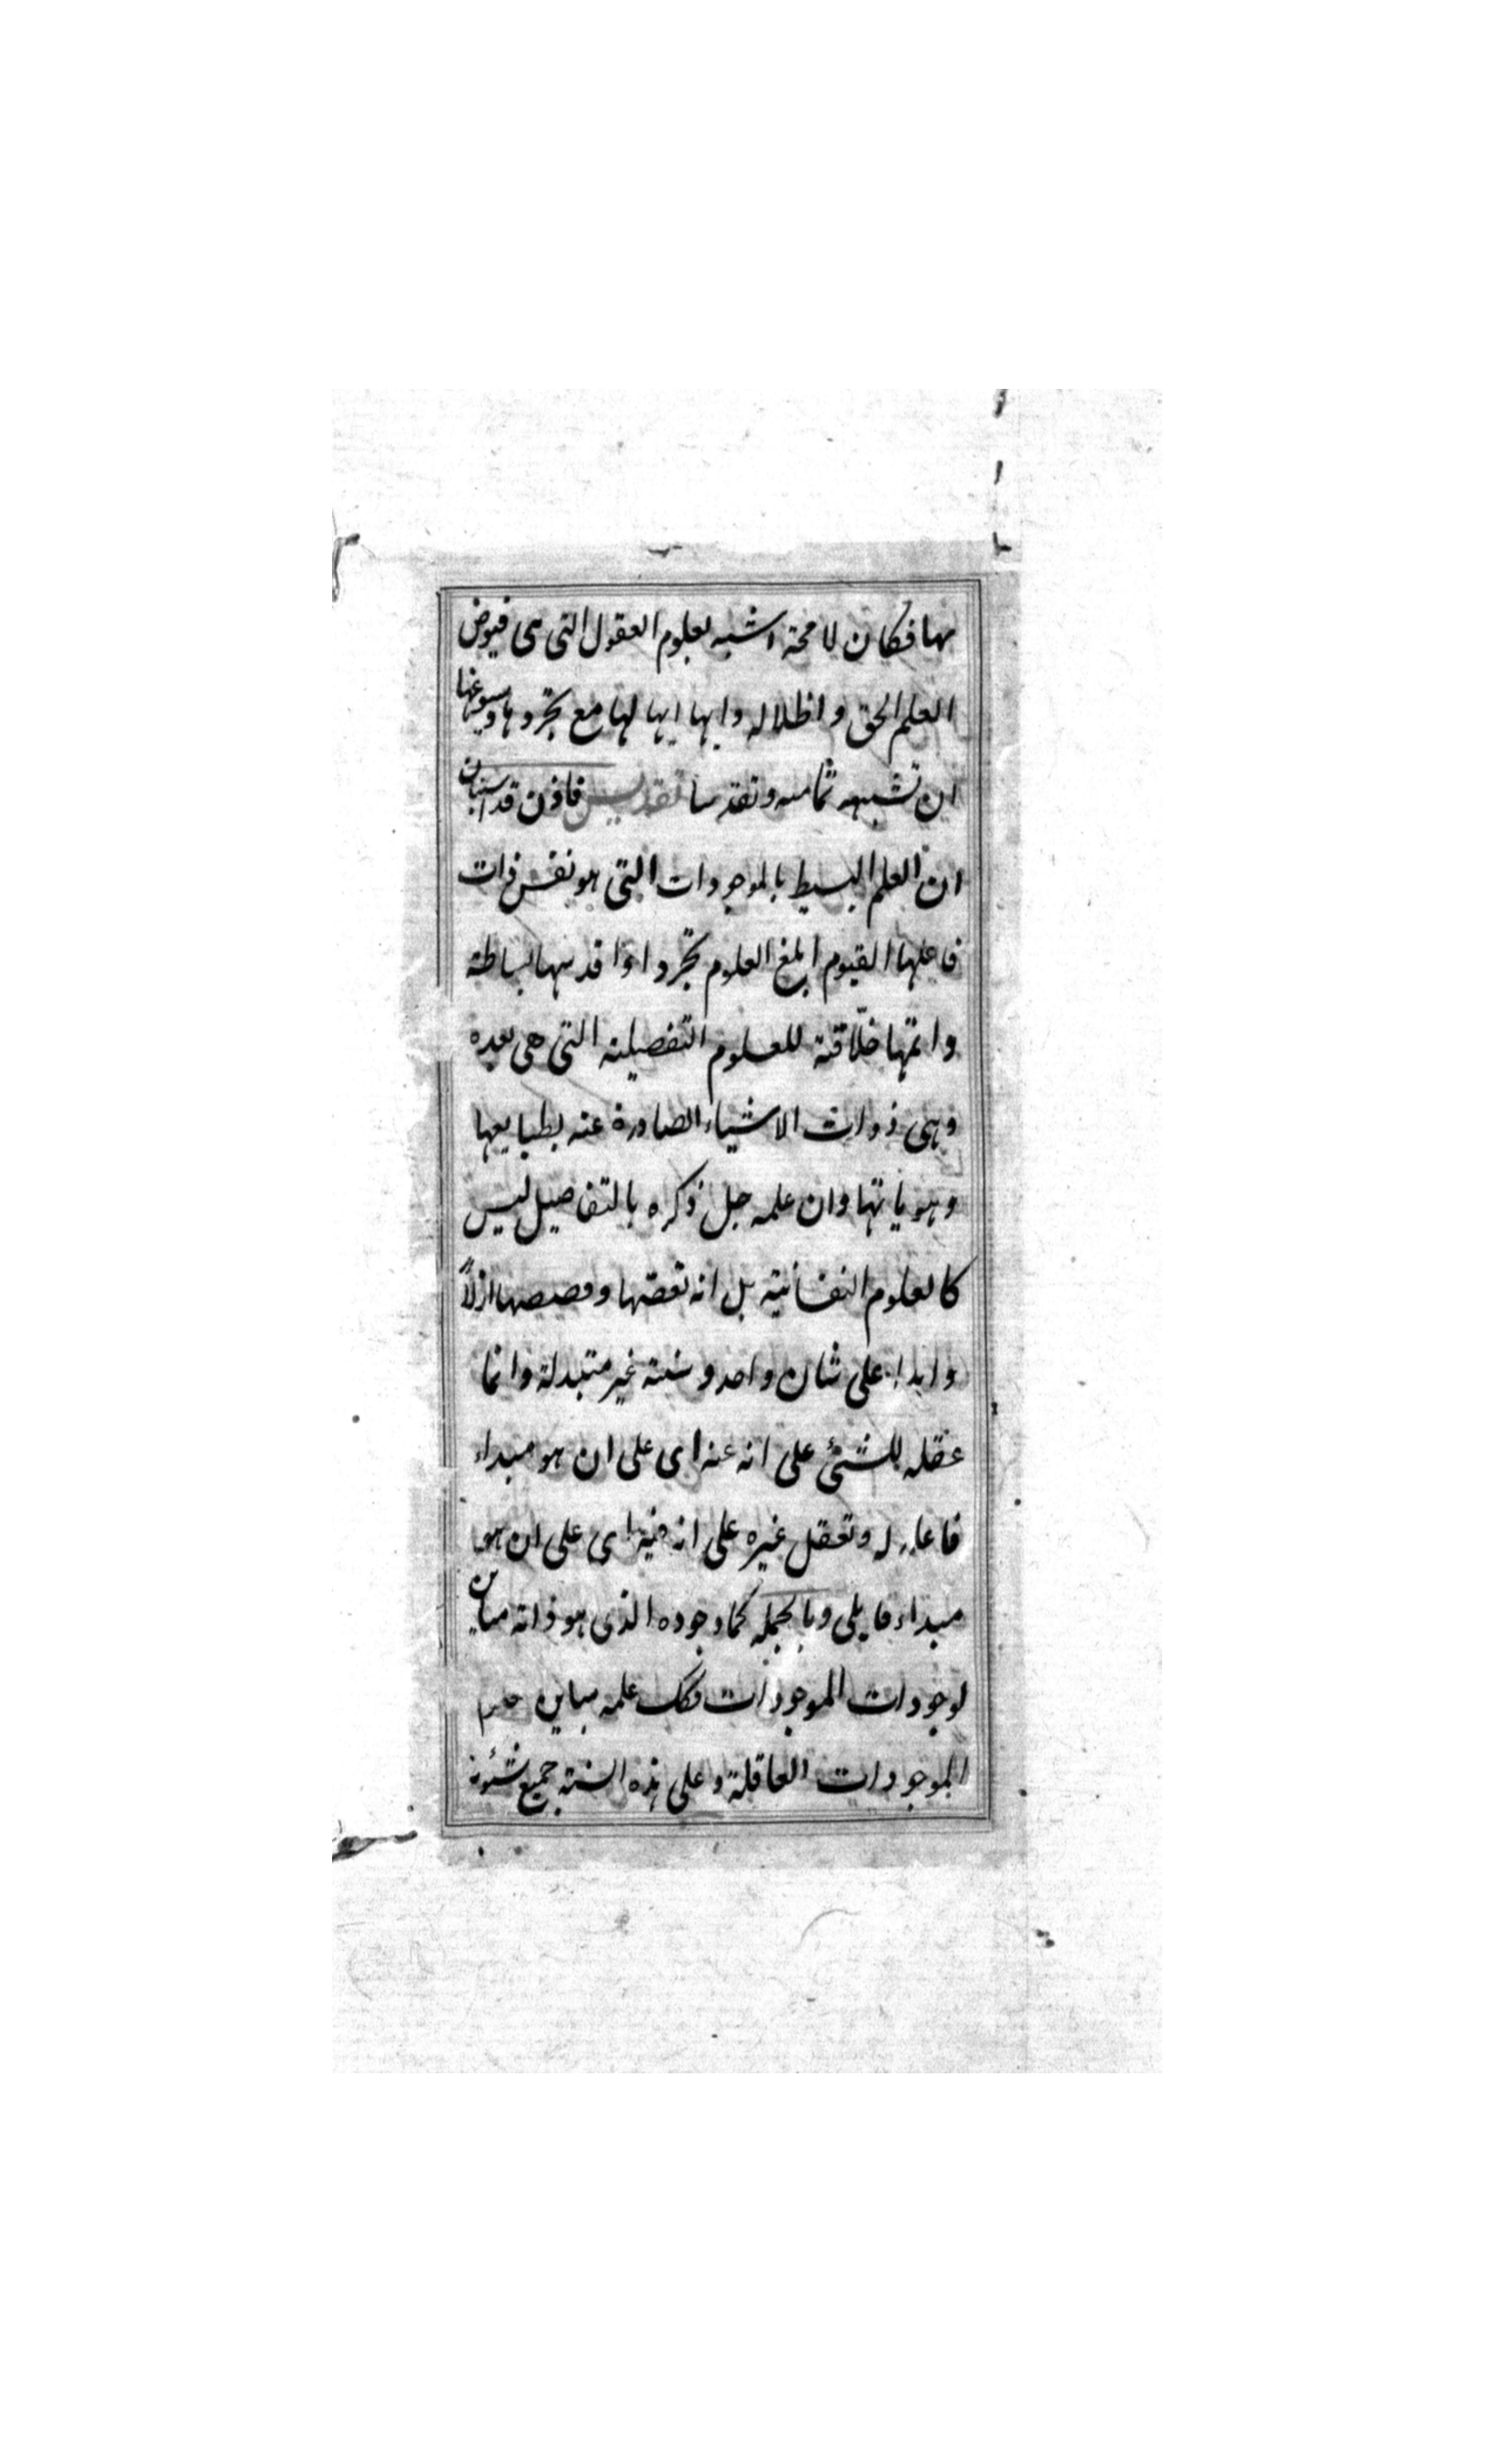 بها فكان لا محة اشبه لعلوم العقول التى هى فيوض
العلم الحق و اظلاله و ايها ايها لها مع تجردها وسبوغها
ان تشبهه تماميه وتقدسا تقديس فاذن قد استبان
ان العلم البسيط بالموجودات التى هو نفس ذات
فاعلها القيوم ابلغ العلوم تجردا واقدسها بساطة
واتمها خلّاقة للعلوم التفصيلية التى هى بعده
وهى ذوات الاشياء الصادرة عنه بطبايعها
وهوياتها وان علمه جل ذكره بالتفاصيل ليس
كالعلوم النفسانية بل انه بقضها وقصصها ازلاً
وابدا على شان واحد وسنة غير متبدلة وانما
عقله للشئ على انه عنه اى على ان هو مبداء
فاعلى له وتعقل غيره على انه فيه اى على ان هو
مبداء قابلى وبالجمله كما وجوده الذى هو ذاته مباين
لوجودات الموجودات فكك علمه مباين علم
الموجودات العاقلة و على هذه السنة جميع شئونه